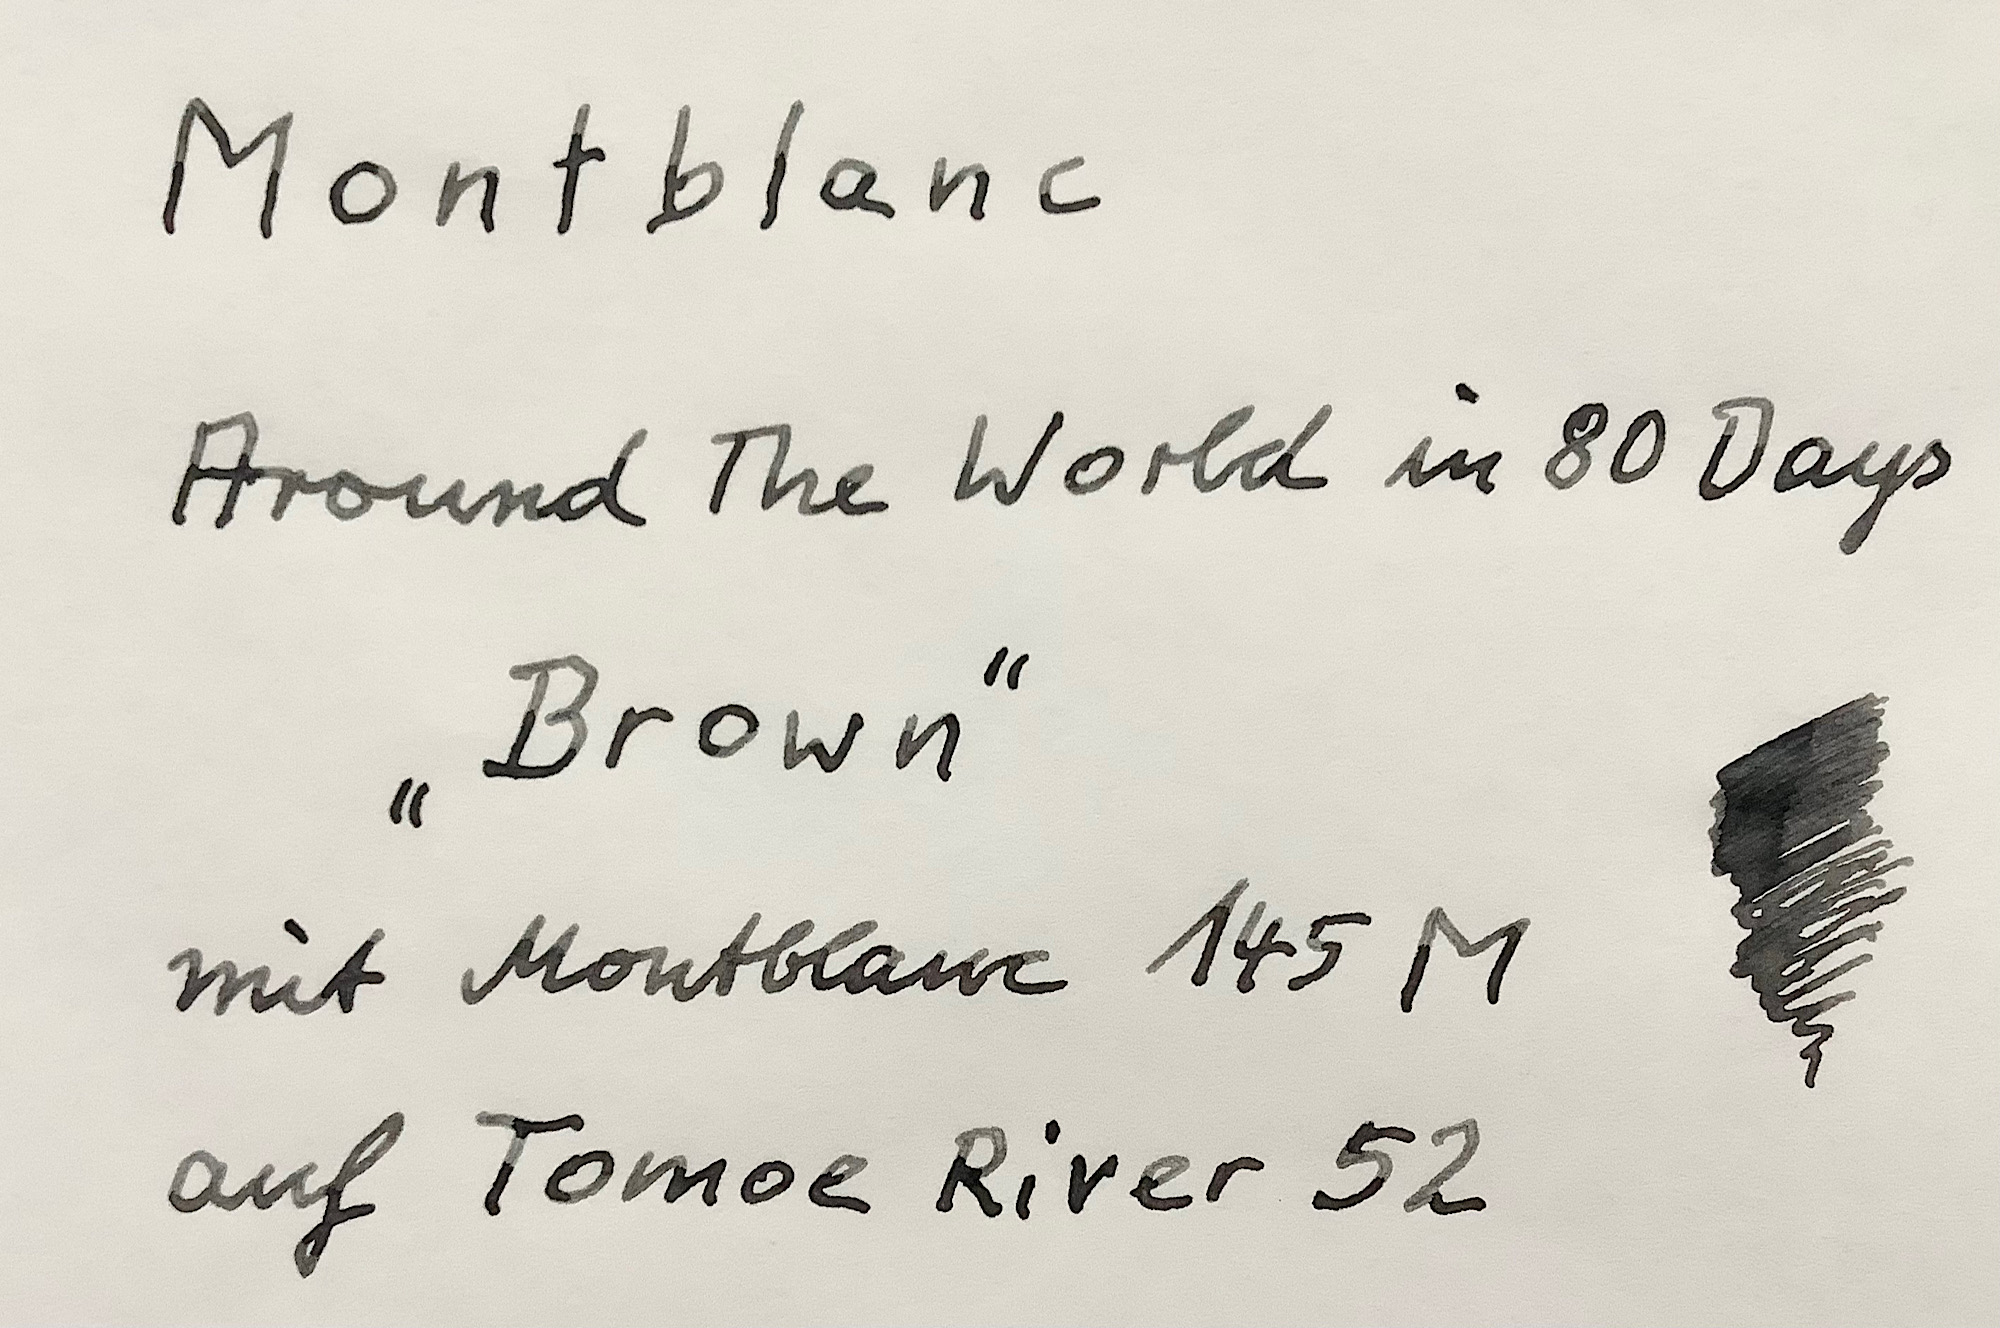 Montblanc
Around The World in 80 Days
„Brown“
mit Montblanc 145 M
auf Tomoe River 52